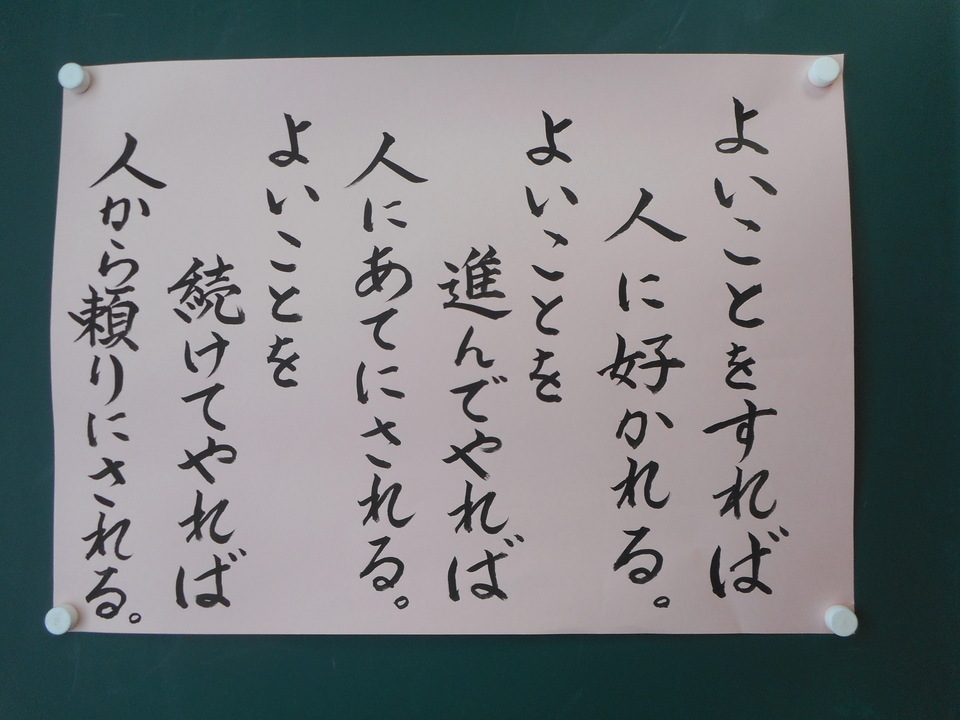 よいことをすれば
人に好かれる。
よいことを
進んでやれば
人にあてにされる。
よいことを
続けてやれば
人から頼りにされる。